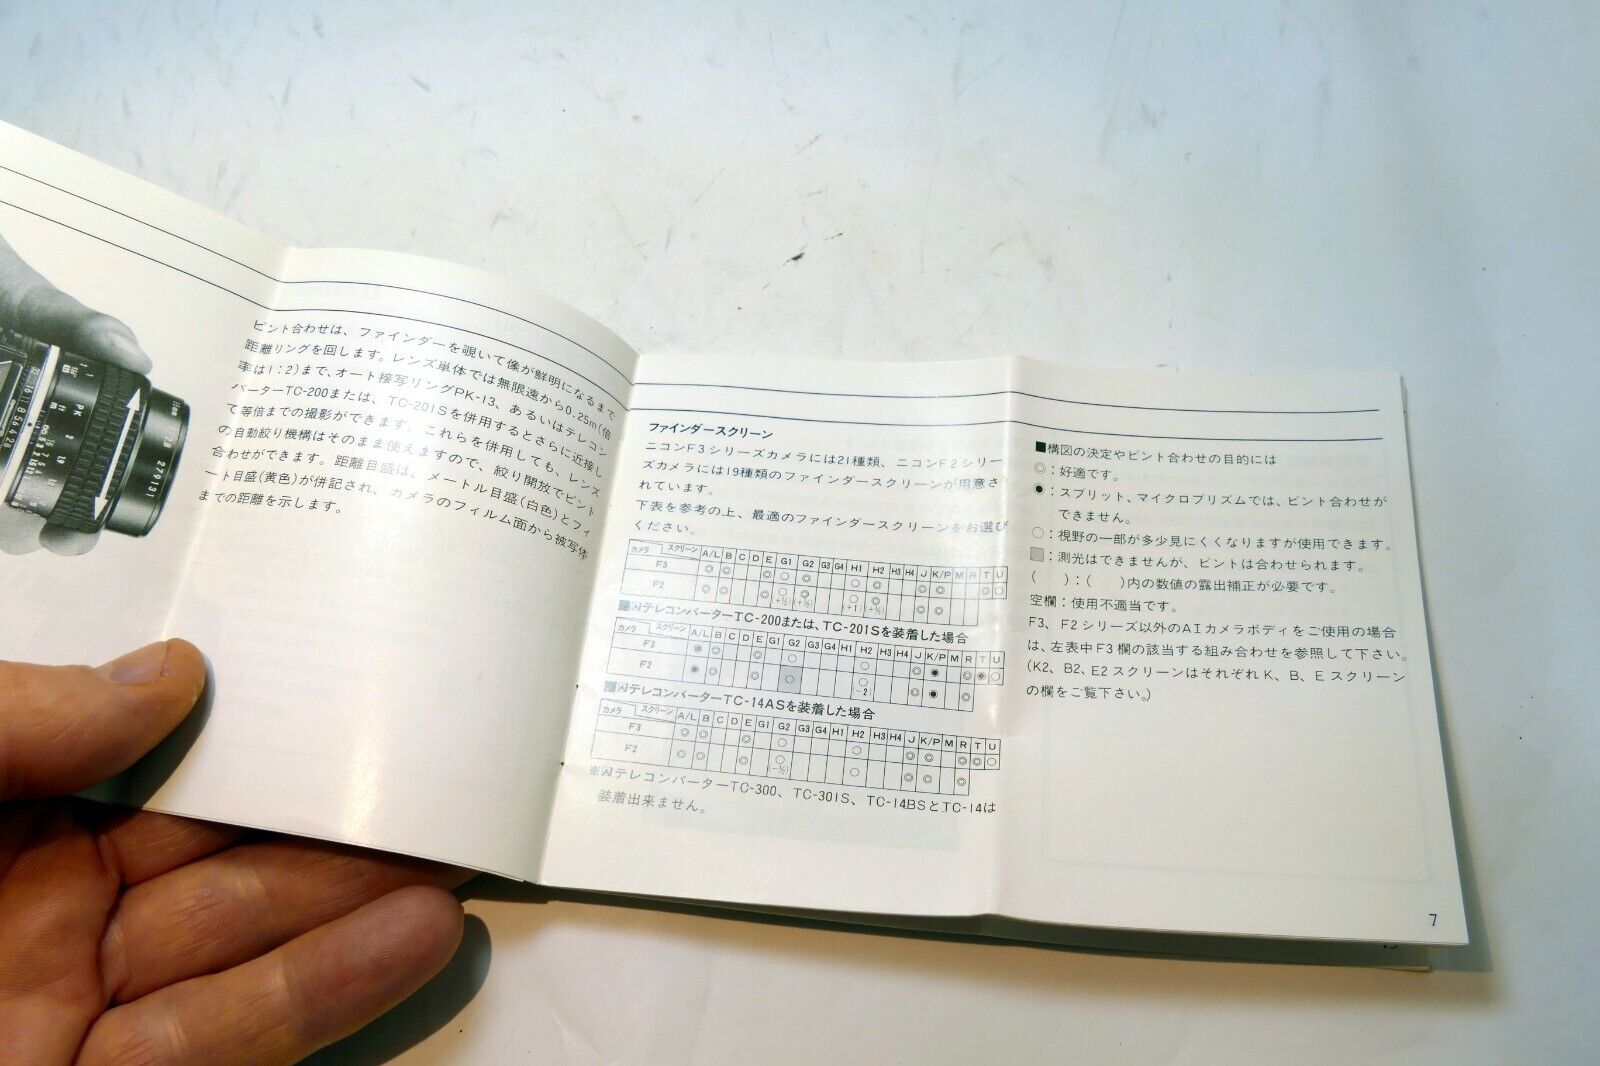 ピント合わせは、ファインダーを覗いて像が鮮明になるまで
距離リングを回します。レンズ単体では無限遠から0.25m(倍
率は1:2)まで、オート接写リングPK-13、あるいはテレコン
バーターTC-200または、TC-201Sを併用するとさらに近接し
て等倍までの撮影ができます。これらを併用しても、レンズ
の自動絞り機構はそのまま使えますので、絞り開放でピント
合わせができます。距離目盛は、メートル目盛(白色)とフィ
ート目盛(黄色)が併記され、カメラのフィルム面から被写体
までの距離を示します。
ファインダースクリーン
ニコンF3シリーズカメラには21種類、ニコンF2シリー
ズカメラには19種類のファインダースクリーンが用意さ
れています。
下表を参考の上、最適のファインダースクリーンをお選び
ください。
カメラ スクリーン A/L B C D E G1 G2 G3 G4 H1 H2 H3 H4 J K/P M R T U
F3 ◎ ◎ ◎ ○ ◎ ○ ◎ ◎ ◎ ◎ ○
F2 ◎ ◎ ◎ ○(+½) ◎(+½) ○(+1) ◎(+½) ◎ ◎
■テレコンバーターTC-200または、TC-201Sを装着した場合
カメラ スクリーン A/L B C D E G1 G2 G3 G4 H1 H2 H3 H4 J K/P M R T U
F3
F2
■テレコンバーターTC-14ASを装着した場合
カメラ スクリーン A/L B C D E G1 G2 G3 G4 H1 H2 H3 H4 J K/P M R T U
F3 ◎ ◎ ◎ ○ ○ ◎ ◎ ◎ ◎ ○
F2 ◎ ◎ ◎ ○(-½) ○ ◎ ◎ ◎
※テレコンバーターTC-300、TC-301S、TC-14BSとTC-14は
装着出来ません。
■構図の決定やピント合わせの目的には
◎:好適です。
◉:スプリット、マイクロプリズムでは、ピント合わせが
できません。
○:視野の一部が多少見にくくなりますが使用できます。
■:測光はできませんが、ピントは合わせられます。
( ):( )内の数値の露出補正が必要です。
空欄:使用不適当です。
F3、F2シリーズ以外のAIカメラボディをご使用の場合
は、左表中F3欄の該当する組み合わせを参照して下さい。
(K2、B2、E2スクリーンはそれぞれK、B、Eスクリーン
の欄をご覧下さい。)
7